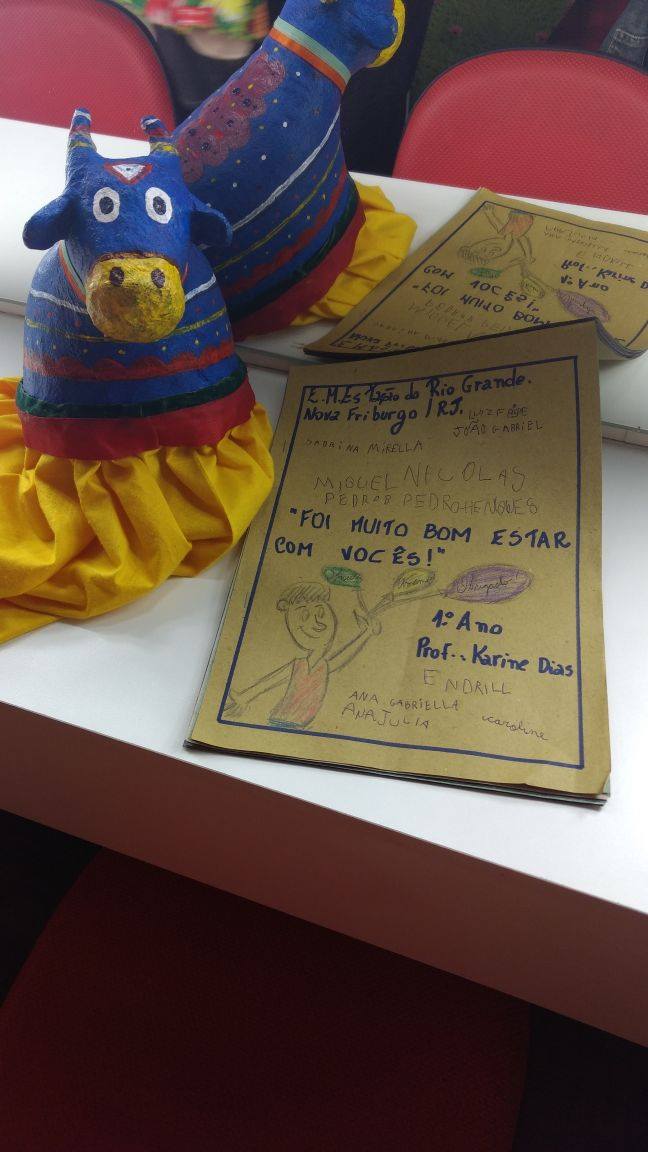 E.M. Estação do Rio Grande.
Nova Friburgo / RJ.
LUIZ FELIPE
JOÃO GABRIEL
SABRINA MIRELLA
MIGUEL NICOLAS
PEDRO B PEDRO HENRIQUES
"FOI MUITO BOM ESTAR
COM VOCÊS!"
Obrigado
1º Ano
Prof.. Karine Dias
ENDRILL
ANA GABRIELLA
ANA JULIA
caroline
COM VOCÊS!"
"FOI MUITO BOM
1º Ano
Prof.. Karine D